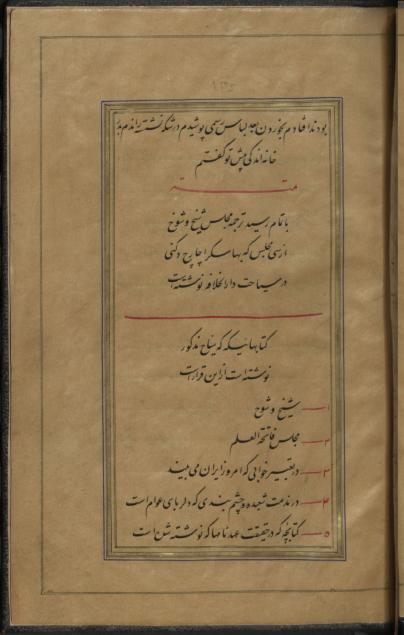 بودند افتادم بخوردن بعد لباس رسمی پوشیدم درشکه نشسته راندم
خانه اندکی پیش تو گفتم
تمت
باتمام رسید ترجمه مجلس شیخ و شوخ
از سی مجلس که بهاسکرا چارج دکنی
در سیاحت دارالخلافه نوشته است
کتابهائیکه که سیاح مذکور
نوشته است از این قرار است
۱ شیخ و شوخ
۲ مجلس فاتحة العلم
۳ در تعبیر خوابی که امروز ایران می بیند
۴ در مذمت شعبده و چشم بندی که دلربای عوام است
۵ کتابچه که در حقیقت عهدنامها که نوشته شده است